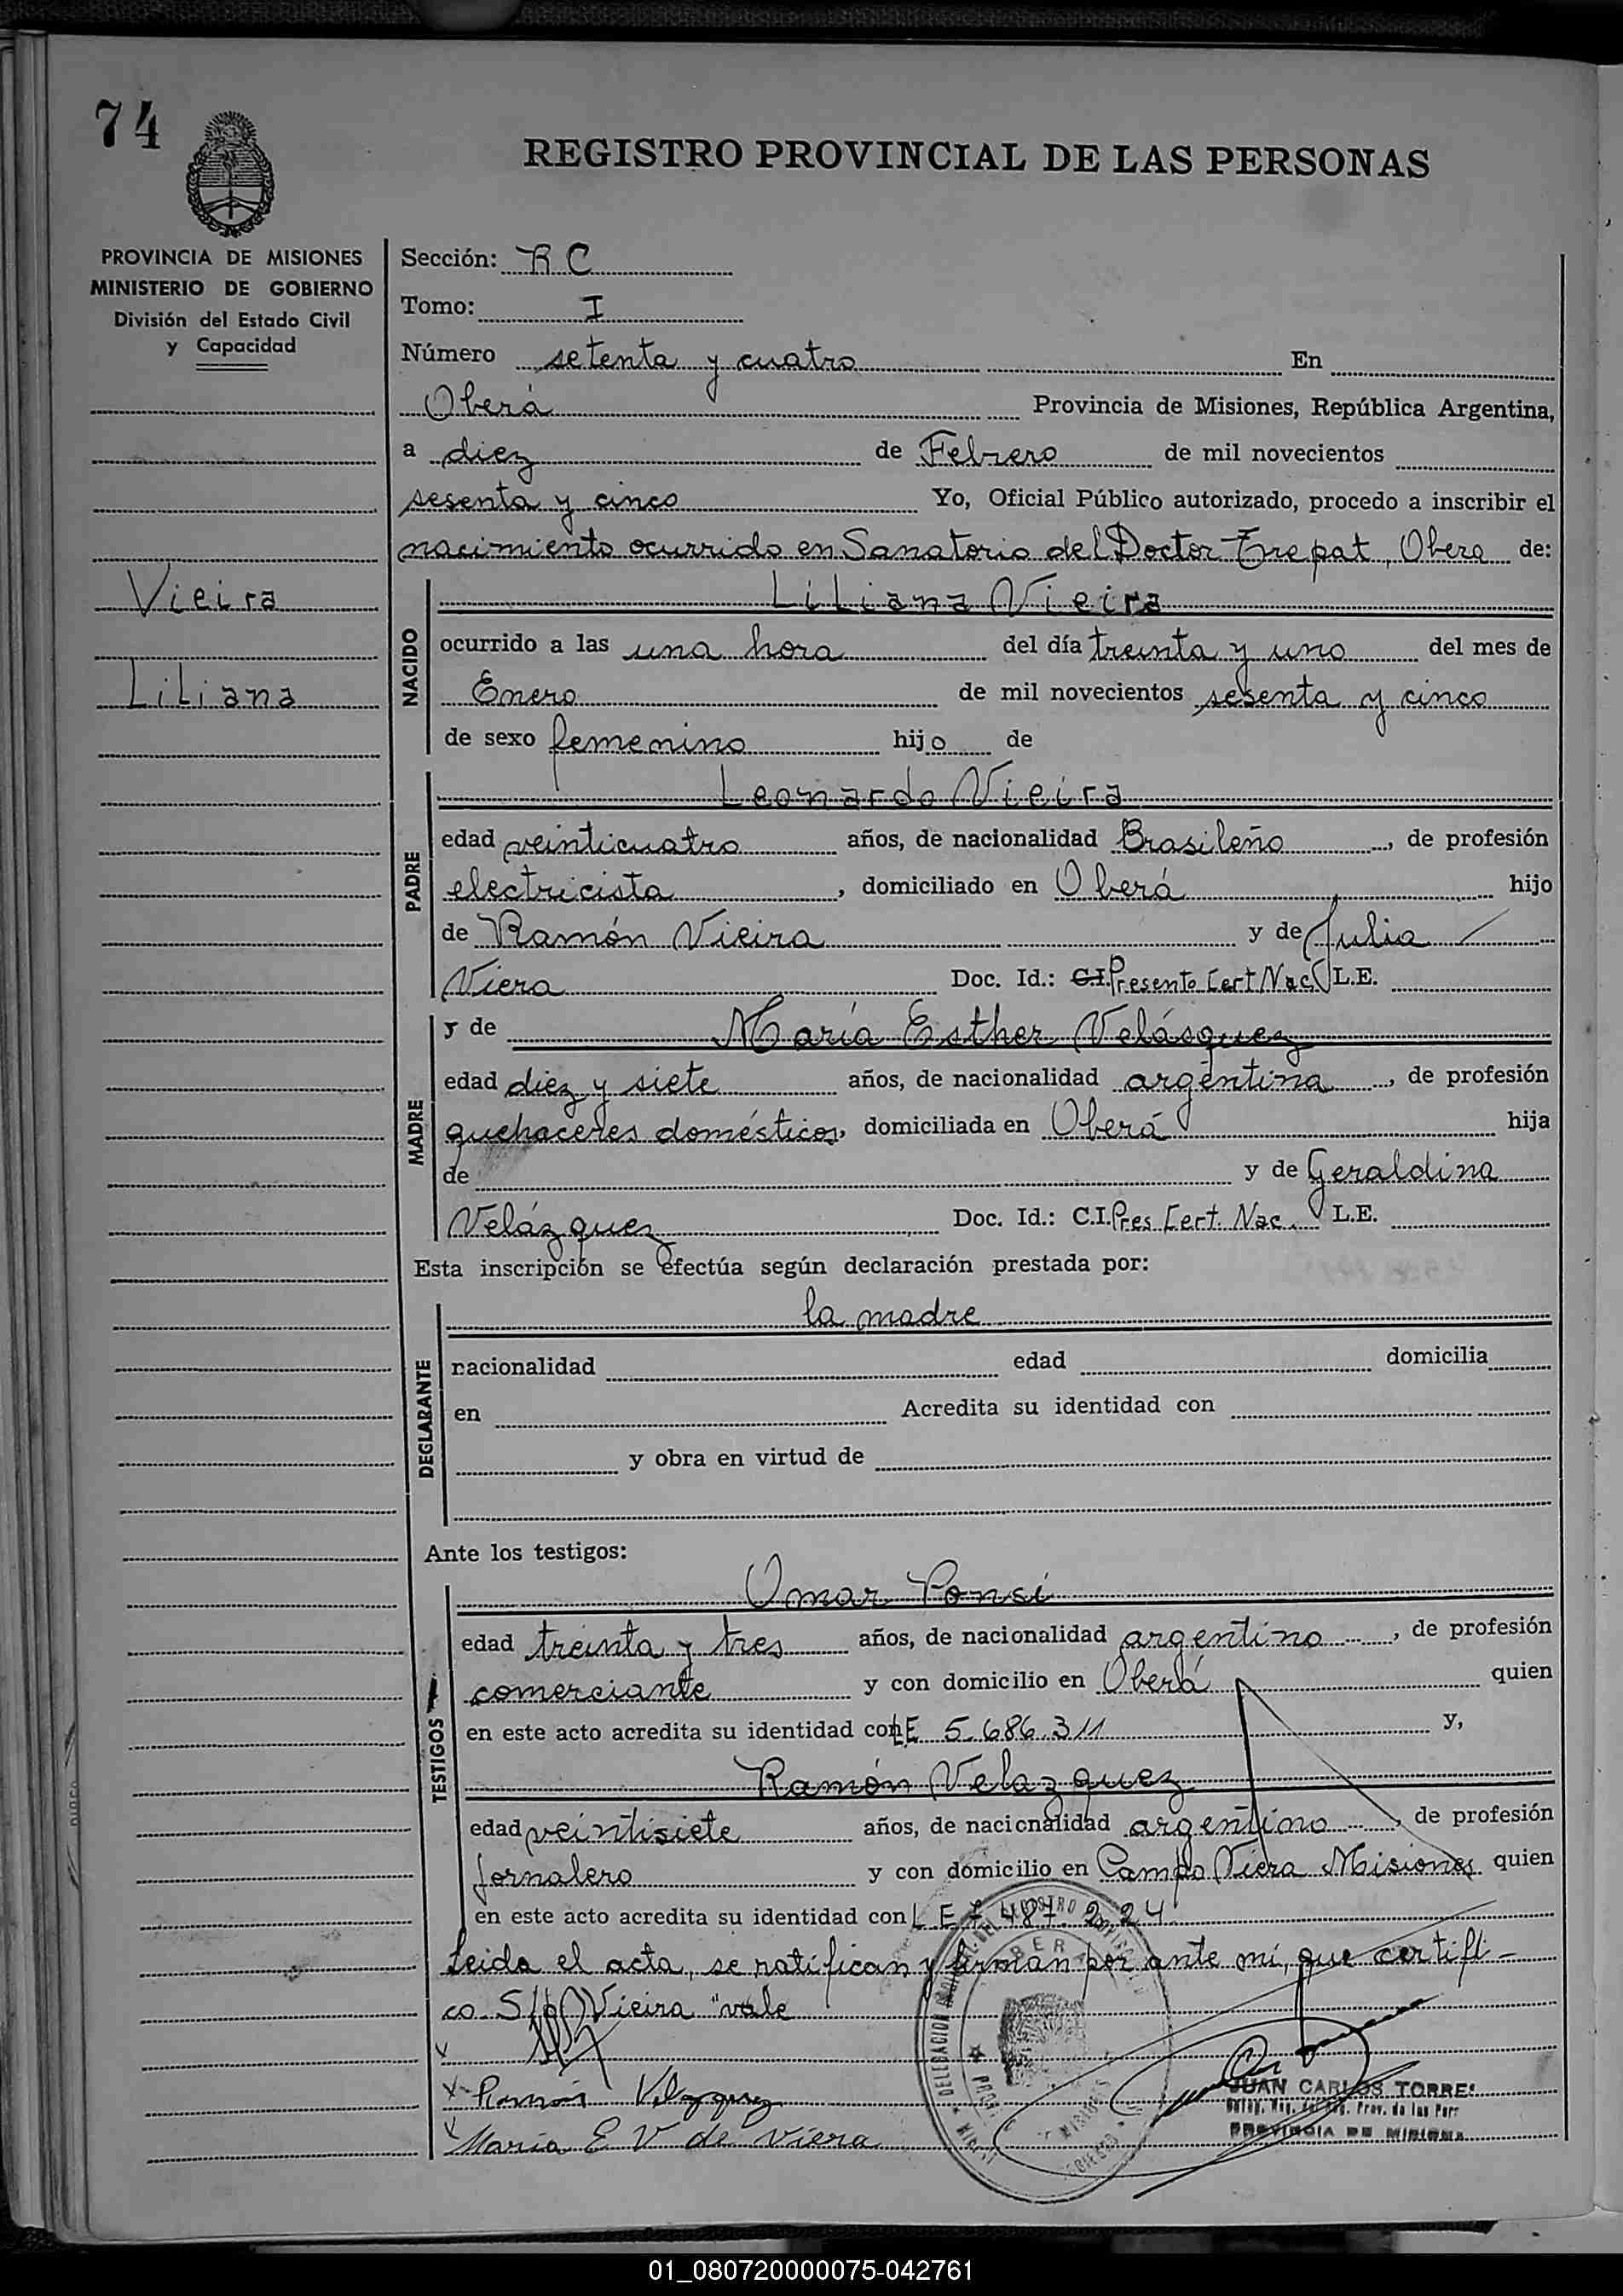 74
REGISTRO PROVINCIAL DE LAS PERSONAS
PROVINCIA DE MISIONES
MINISTERIO DE GOBIERNO
División del Estado Civil
y Capacidad
Vieira
Liliana
Sección: R C
Tomo: I
Número setenta y cuatro En
Oberá Provincia de Misiones, República Argentina,
a diez de Febrero de mil novecientos
sesenta y cinco Yo, Oficial Público autorizado, procedo a inscribir el
nacimiento ocurrido en Sanatorio del Doctor Obera de:
NACIDO
Liliana Vieira
ocurrido a las una hora del día treinta y uno del mes de
Enero de mil novecientos sesenta y cinco
de sexo femenino hijo de
PADRE
Leonardo Vieira
edad veinticuatro años, de nacionalidad Brasileño, de profesión
electricista, domiciliado en Oberá hijo
de Ramón Vieira y de Julia
Viera Doc. Id.: C.I. Presento Cert Nac. L.E.
MADRE
y de María Esther Velásquez
edad diez y siete años, de nacionalidad argentina, de profesión
quehaceres domésticos, domiciliada en Oberá hija
de y de Geraldina
Velázquez Doc. Id.: C.I. Pres Cert. Nac. L.E.
Esta inscripción se efectúa según declaración prestada por:
DEGLARANTE
la madre
racionalidad edad domicilia
en Acredita su identidad con
y obra en virtud de
Ante los testigos:
TESTIGOS
Omar Ponsi
edad treinta y tres años, de nacionalidad argentino, de profesión
comerciante y con domicilio en Oberá quien
en este acto acredita su identidad con LE 5.686.311 y,
Ramón Velazquez
edad veintisiete años, de nacionalidad argentino, de profesión
jornalero y con domicilio en Campo Viera Misiones quien
en este acto acredita su identidad con L E 7.487.224
Leida el acta, se ratifican y firman por ante mí, que certifi-
co. S/b Vieira "vale
x
x Ramón Velazquez
x Maria E V de Viera
JUAN CARLOS TORRES
PROVINCIA DE MISIONES
01_080720000075-042761